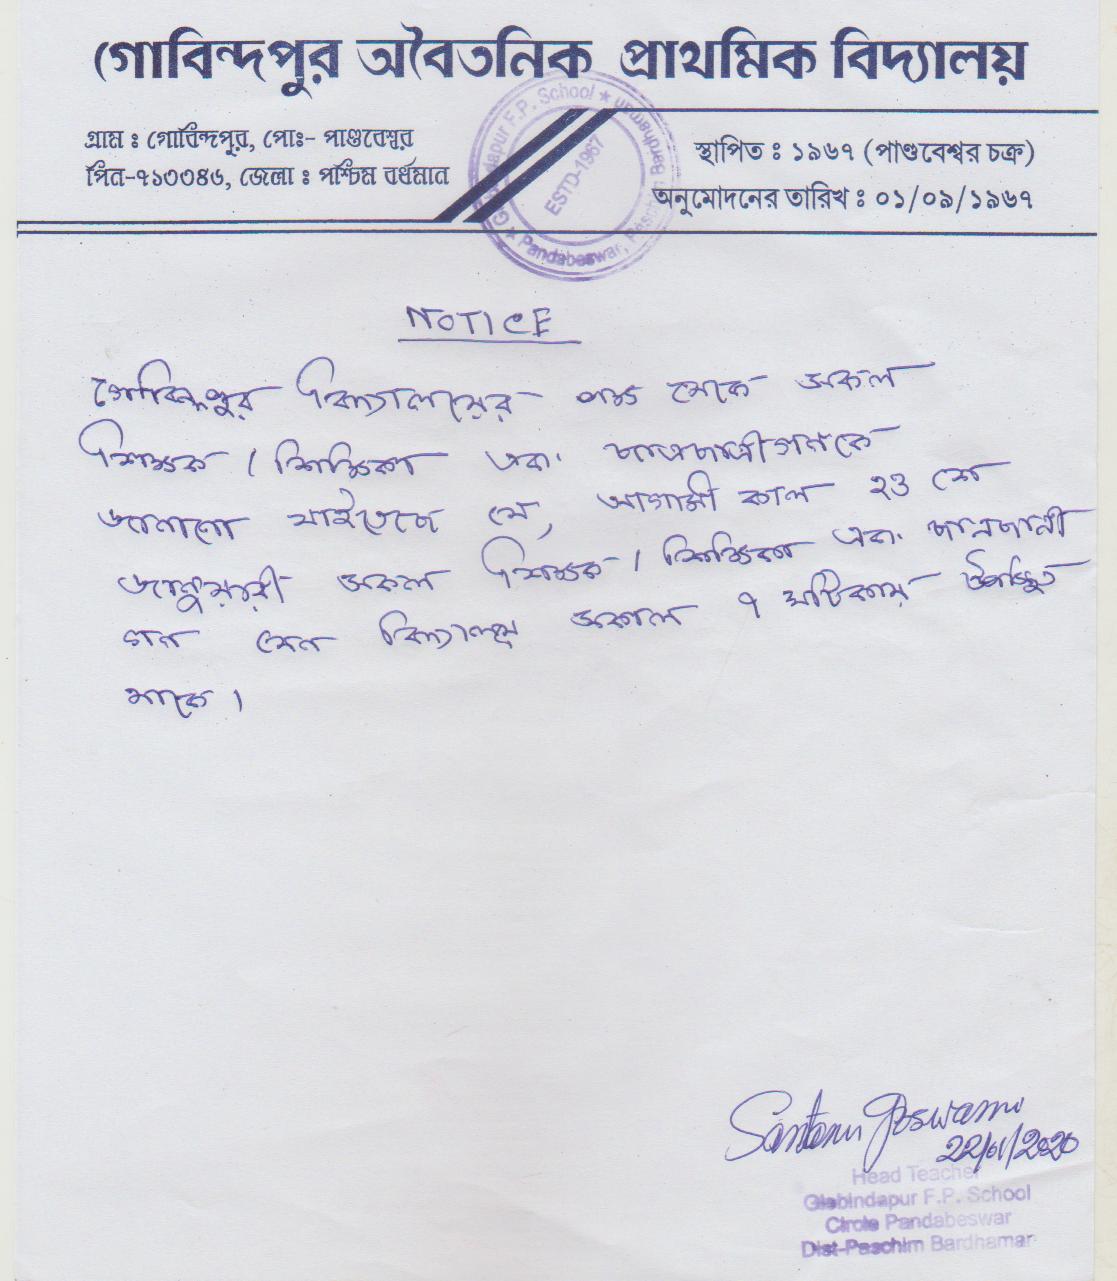 গোবিন্দপুর অবৈতনিক প্রাথমিক বিদ্যালয়
গ্রাম : গোবিন্দপুর, পোঃ- পাণ্ডবেশ্বর
পিন-৭১৩৩৪৬, জেলা : পশ্চিম বর্ধমান
স্থাপিত : ১৯৬৭ (পাণ্ডবেশ্বর চক্র)
অনুমোদনের তারিখ : ০১/০৯/১৯৬৭
Gobindapur F.P. School ★ Pandabeswar, Paschim Bardhaman ★
ESTD-1967
NOTICE
গোবিন্দপুর বিদ্যালয়ের পক্ষ থেকে সকল
শিক্ষক / শিক্ষিকা এবং ছাত্রছাত্রীগনকে
জানানো যাইতেছে যে, আগামী কাল ২৩ শে
জানুয়ারী সকল শিক্ষক / শিক্ষিকা এবং ছাত্রছাত্রী
গন যেন বিদ্যালয়ে সকাল ৭ ঘটিকায় উপস্থিত
থাকে ।
Santanu Goswami
22/01/2020
Head Teacher
Gobindapur F.P. School
Circle Pandabeswar
Dist-Paschim Bardhaman